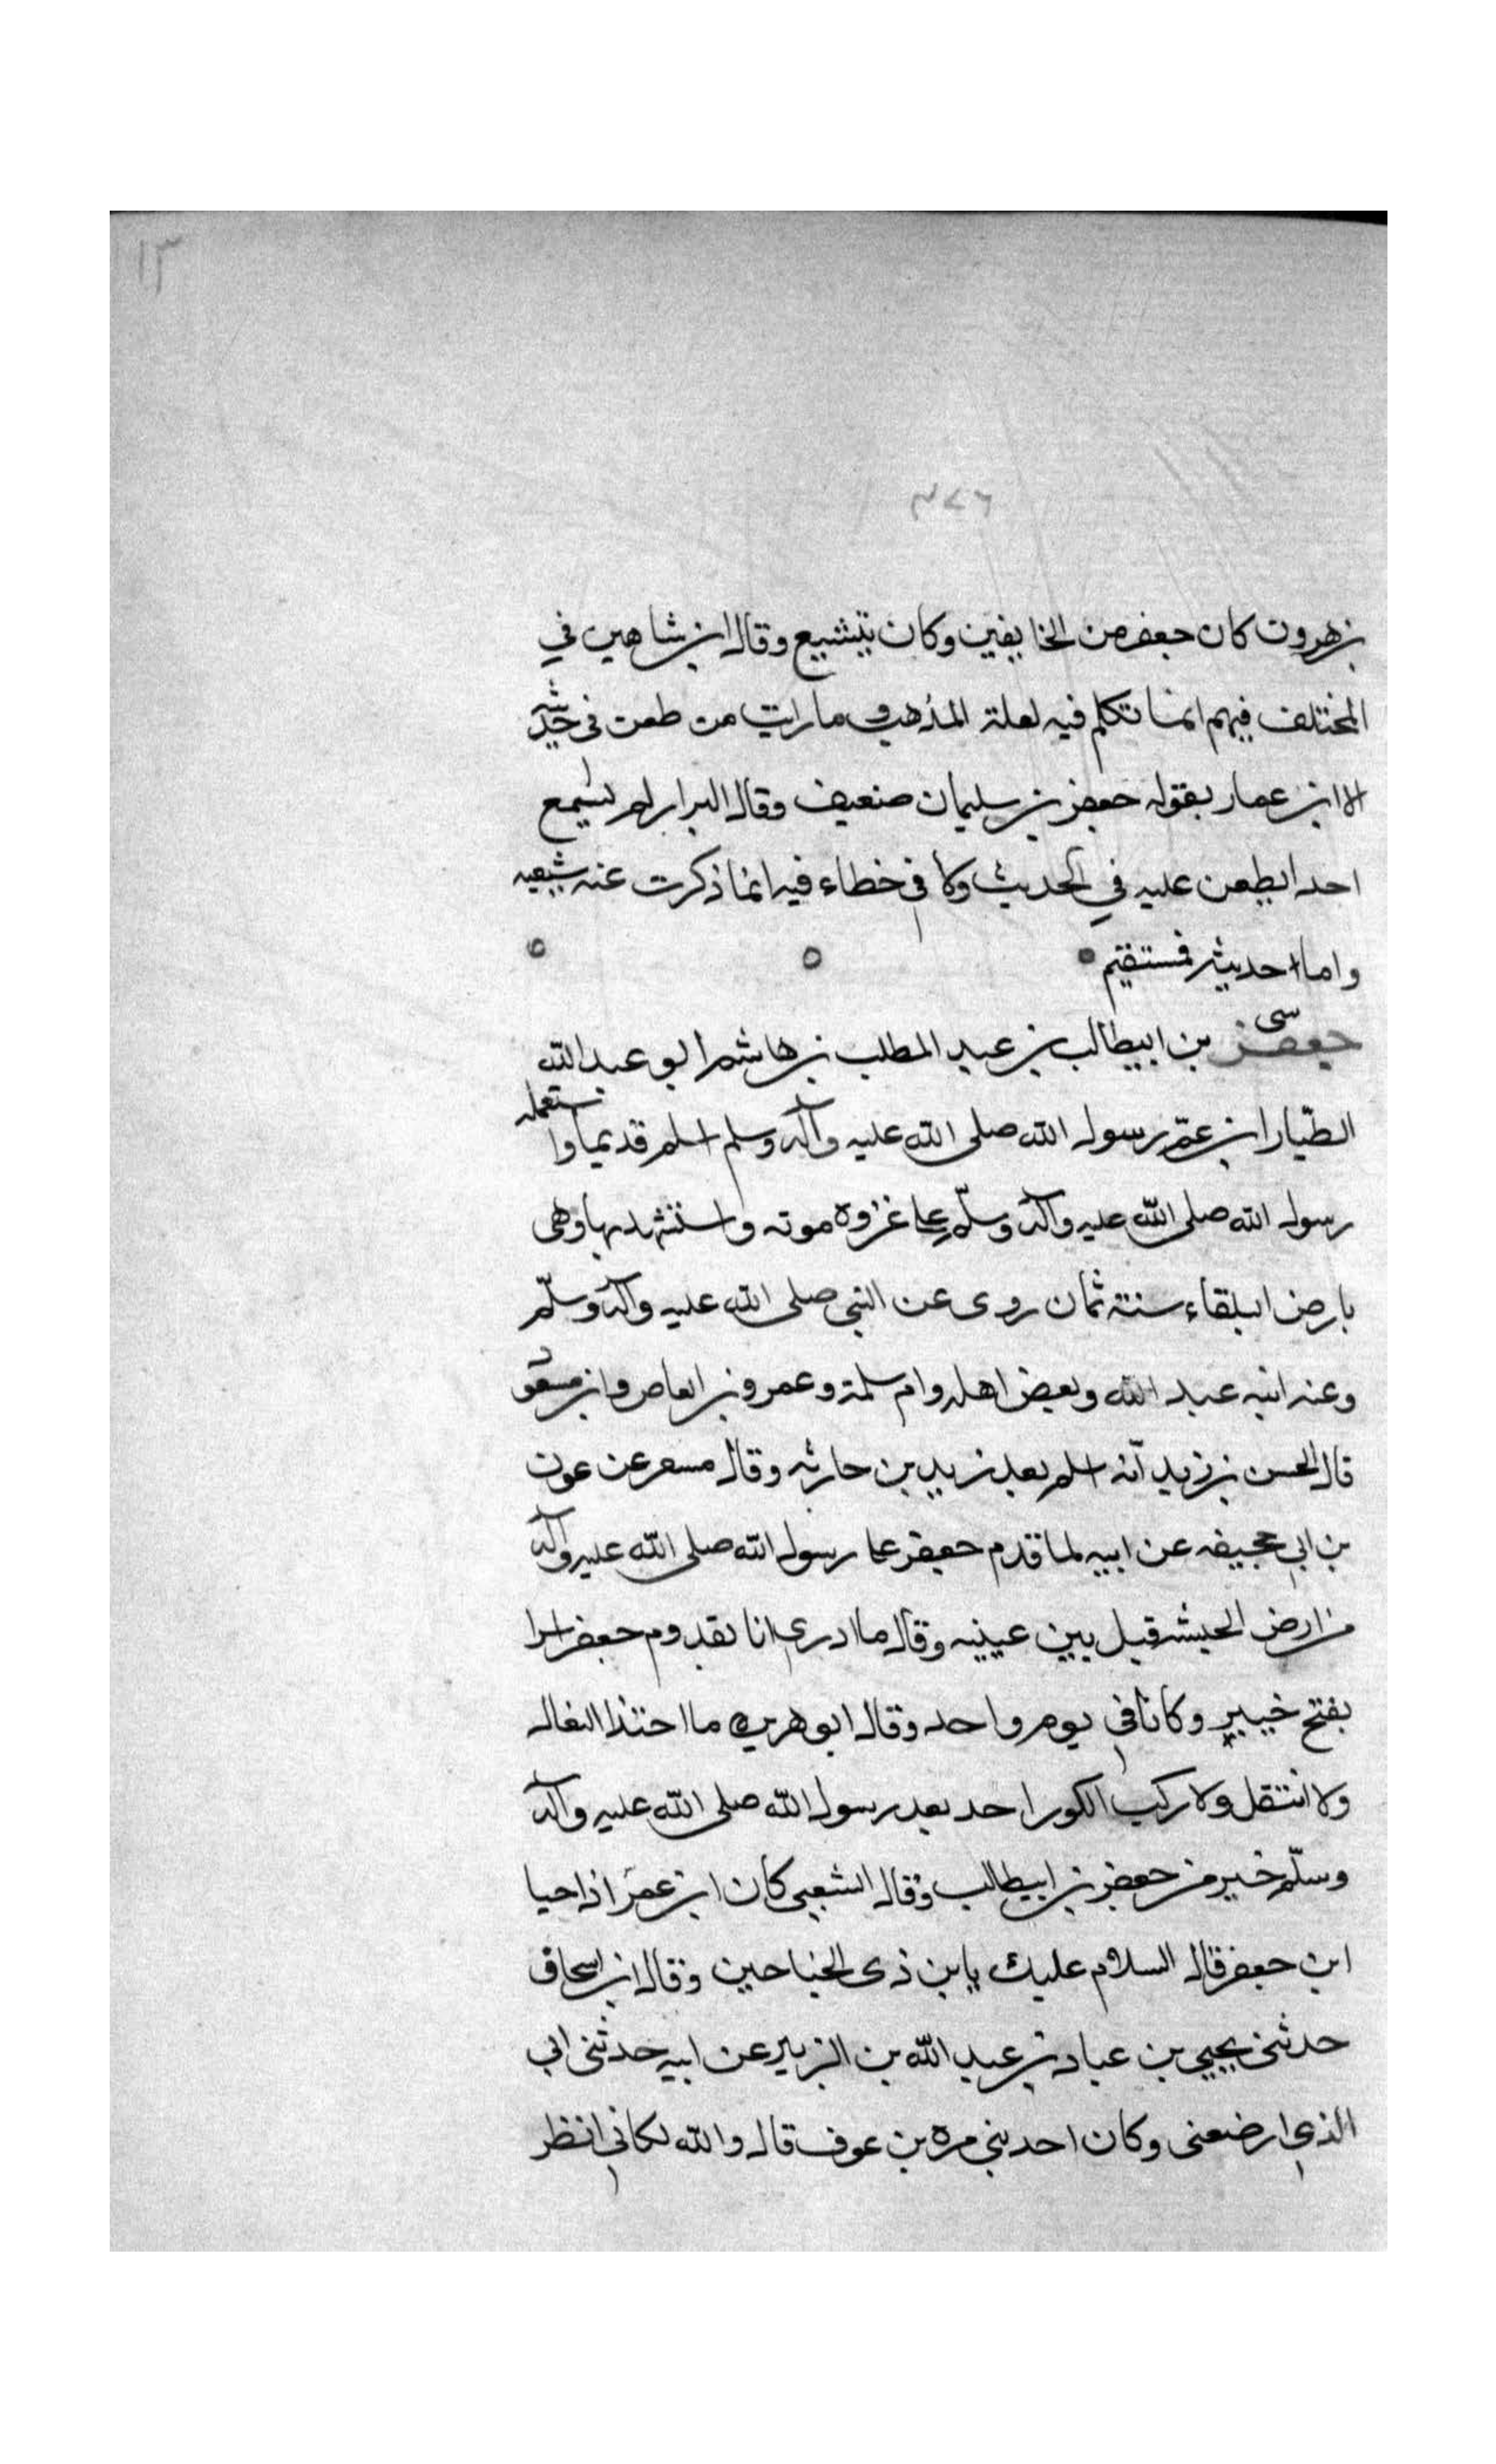 ١٣
٣٧٦
بن هرون كان جعفر من الخايفين وكان يتشيع وقال ابن شاهين في
المختلف فيهم انما تكلم فيه لعلة المذهب وما رايت من طعن في حديثه
الا ابن عمار بقوله جعفر بن سليمان ضعيف وقال البزار لم يسمع
احدا يطعن عليه في الحديث ولا في خطاء فيه انما ذكرت عنه شيعيه
واما حديثه فمستقيم
سى
جعفر بن ابيطالب بن عبد المطلب بن هاشم ابو عبد الله
الطيار ابن عم رسول الله صلى الله عليه وآله وسلم اسلم قديما واستعمله
رسول الله صلى الله عليه وآله وسلم على غزوة موته واستشهد بها وهى
بارض البلقاء سنة ثمان روى عن النبي صلى الله عليه وآله وسلم
وعنه ابنه عبد الله وبعض اهله وام سلمة وعمرو بن العاص وابن مسعود
قال الحسن بن زيد انه اسلم بعد زيد بن حارثه وقال مسعر عن عون
بن ابي جحيفه عن ابيه لما قدم جعفر على رسول الله صلى الله عليه وآله
من ارض الحبشه قبل بين عينيه وقال ما ادري انا بقدوم جعفر اسرا
بفتح خيبر وكانا في يوم واحد وقال ابو هريره ما احتذا النعال
ولا انتقل ولا ركب الكور احد بعد رسول الله صلى الله عليه وآله
وسلم خير من جعفر بن ابيطالب وقال الشعبى كان ابن عمر اذا حيا
ابن جعفر قال السلام عليك يا بن ذى الجناحين وقال ابن اسحاق
حدثنى يحيى بن عباد بن عبد الله بن الزبير عن ابيه حدثنى ابي
الذي ارضعنى وكان احد بني مره بن عوف قال والله لكاني انظر